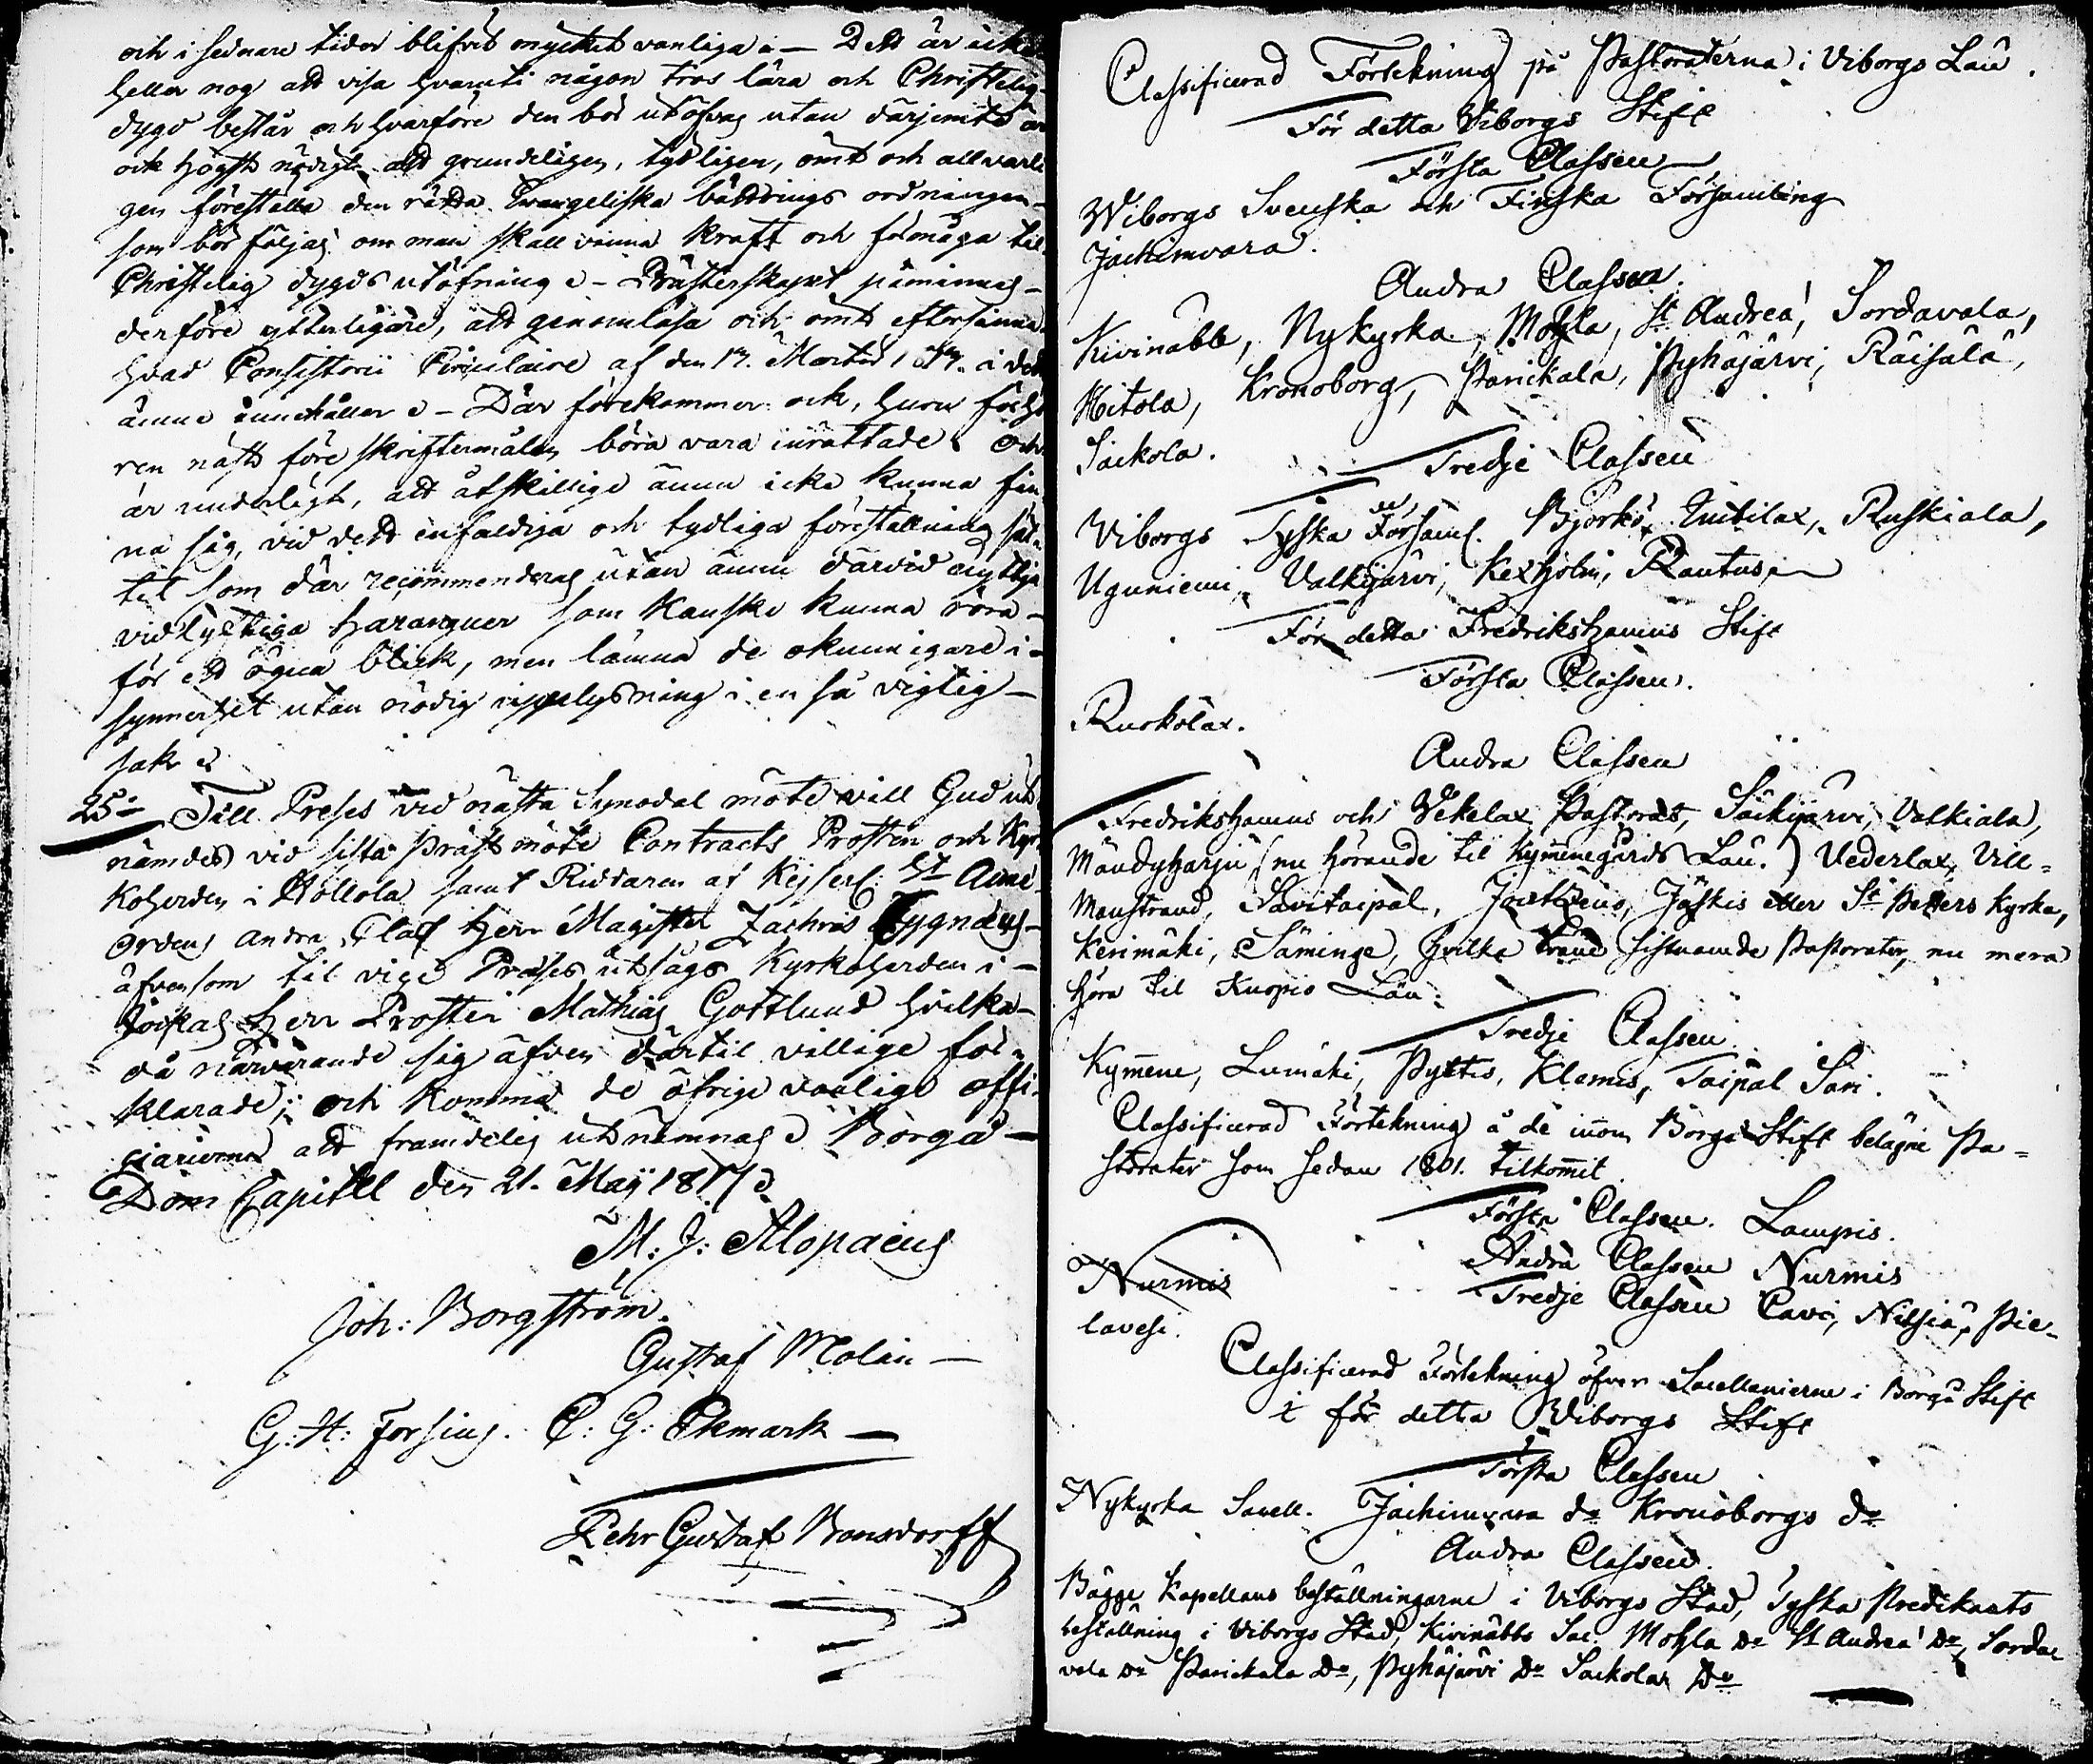 och i sednare tider blifvit mycket vanliga. — Det är icke
heller nog att visa hvaruti någon tros lära och Christelig
dygd består och hvarföre den bör utöfvas utan därjemte är
ock högst nödigt att grundeligen, tydligen, ömt och allvarli
gen föreställa den rätta Evangeliska bättrings ordningen
som bör följas om man skall vinna kraft och förmåga til
Christelig dygds utöfning. — Prästerskapet påminnes
derföre ytterligare, att genomläsa och ömt eftersinna
hvad Consistorii Circulaire af den 17. Martii i det
ämne innehåller. — Där förekommer ock, huru förhö
ren näst före skriftermålen böra vara inrättade. Och
är underligt, att åtskillige ännu icke kunna fin
na sig vid det enfaldiga och tydliga föreställning sät
tet som där recommenderas utan ännu därvid nyttja
vidlyftiga haranguer som kanske kunna röra
för et ögna blick, men lämna de okunnigare i
synnerhet utan nödig uppelysning i en så vigtig
sak.
25:o Till Preses vid nästa Synodal möte vill Gud ut
nämdes vid sista präst möte Contracts Prosten och Kyr
koherden i Hollola samt Riddaren af Kejserl. St Annæ
Ordens andra Class Herr Magister Zachris Cygnæus
äfvensom til vice Præses utsågs Kyrkoherden i
Jockas Herr Prosten Mathias Gottlund hvilka
då närvarande sig äfven därtil villige för
klarade; och komma de öfrige vanlige offi
ciarierna att framdeles utnämnas. Borgå
Dom Capitel den 21. Maij 1817.
M: J: Alopæus
Joh: Borgström.
Gustaf Molin
G: H: Forsius. C: G: Ekmark
Pehr Gustaf Bonsdorff
Classificerad Förtekning på Pastoraterna i Viborgs Län.
För detta Viborgs Stift
Första Classen
Wiborgs Svenska och Finska Församling
Jackimvara.
Andra Classen.
Kivinabb, Nykyrka, Mohla, St Andreæ, Sordavala,
Hitola, Kronoborg, Parickala, Pyhäjärvi, Räisälä,
Sackola.
Tredje Classen
Viborgs Tyska Församl. Björkö, Imbilax, Ruskiala,
Uguniemi, Valkjärvi, Kexholm, Rautus,
För detta Fredrikshamns Stift
Första Classen.
Ruokolax.
Andra Classen
Fredrikshamns och Vekelax Pastorat, Säckijärvi, Valkiala,
Mändyharju (nu hörande til Kymmenegårds Län.) Vederlax, Vill=
manstrand, Savitaipal, Joutseno, Jäskis eller St Petters Kyrka,
Kerimäki, Säminge, hvilka tvänne sistnämde Pastorater, nu mera
höra til Kuopio Län.
Tredje Classen
Kymene, Lumäki, Pyttis, Klemis, Taipal Sari.
Classificerad Förtekning å de inom Borgå Stift belägne Pa=
storater som sedan 1801. tilkomit
Första Classen. Lampis.
Andra Classen Nurmis
Nurmis
Tredje Classen Cavi, Nilsiä, Pie-
lavesi.
Classificerad Förtekning öfver Sacellanierne i Borgå Stift
i för detta Viborgs Stift
Första Classen
Nykyrka Sacell. Jackimvara Do Kronoborgs Do
Andra Classen.
Bägge Kapellans beställningarne i Viborgs Stad, Tyska Predikants
beställning i Viborgs Stad, Kivinabbs Sac. Mohla Do St Andreæ Do, Sorda
vala Do Parickala Do, Pyhäjärvi Do Sackolas Do